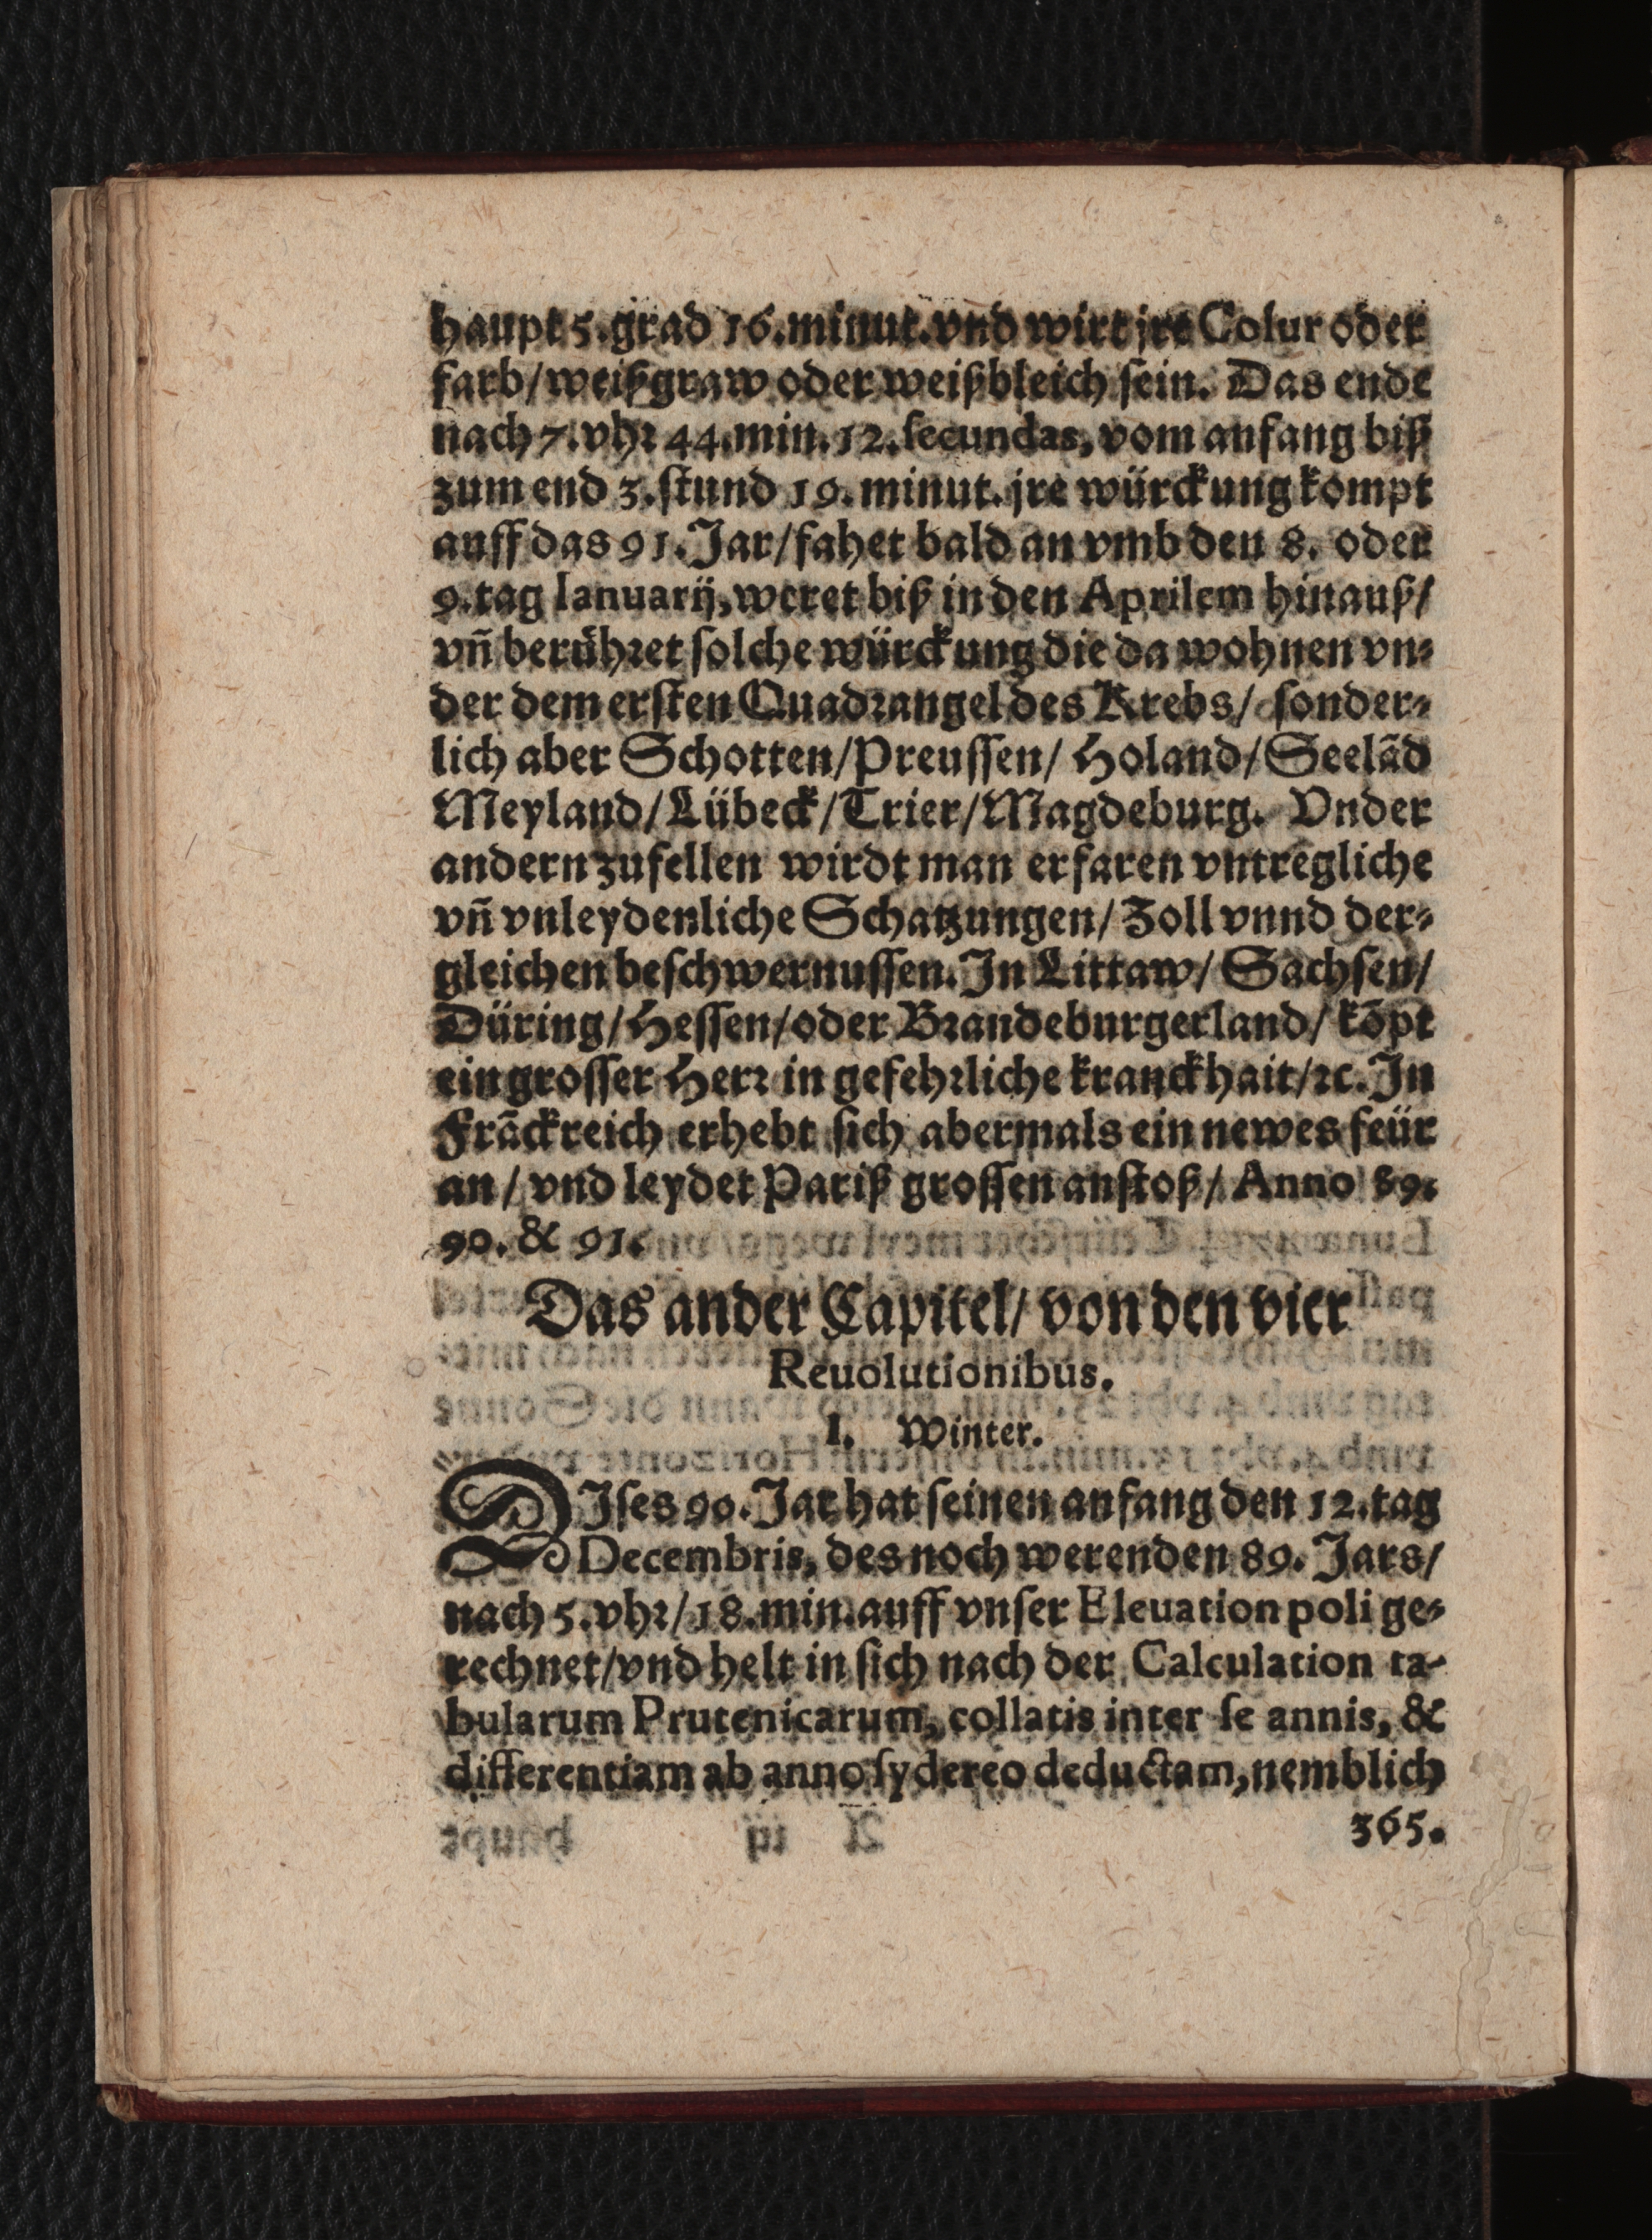 haupt 5. grad 16. minut. vnd wirt jre Colur oder
farb/ weißgraw oder weißbleich sein. Das ende
nach 7. vhr 44. min. 12. secundas, vom anfang biß
zum end 3. stund 19. minut. jre würckung kompt
auff das 91. Jar/ fahet bald an vmb den 8. oder
9. tag Ianuarij, weret biß in den Aprilem hinauß/
vñ berühret solche würckung die da wohnen vn⸗
der dem ersten Quadrangel des Krebs/ sonder⸗
lich aber Schotten/ Preussen/ Holand/ Seelãd
Meyland/ Lübeck/ Trier/ Magdeburg. Vnder
andern zufellen wirdt man erfaren vntregliche
vñ vnleydenliche Schatzungen/ Zoll vnnd der⸗
gleichen beschwernussen. In Littaw/ Sachsen/
Düring/ Hessen/ oder Brandeburgerland/ kõpt
ein grosser Herr in gefehrliche kranckhait/ ꝛc. In
Frãckreich erhebt sich abermals ein newes feür
an/ vnd leydet Pariß grossen anstoß/ Anno 89.
90. & 91.
Das ander Capitel/ von den vier
Reuolutionibus.
I. Winter.
DIses 90. Jar hat seinen anfang den 12. tag
Decembris, des noch werenden 89. Jars/
nach 5. vhr/ 18. min. auff vnser Eleuation poli ge⸗
rechnet/ vnd helt in sich nach der Calculation ta-
bularum Prutenicarum, collatis inter se annis, &
differentiam ab anno sydereo deductam, nemblich
365.